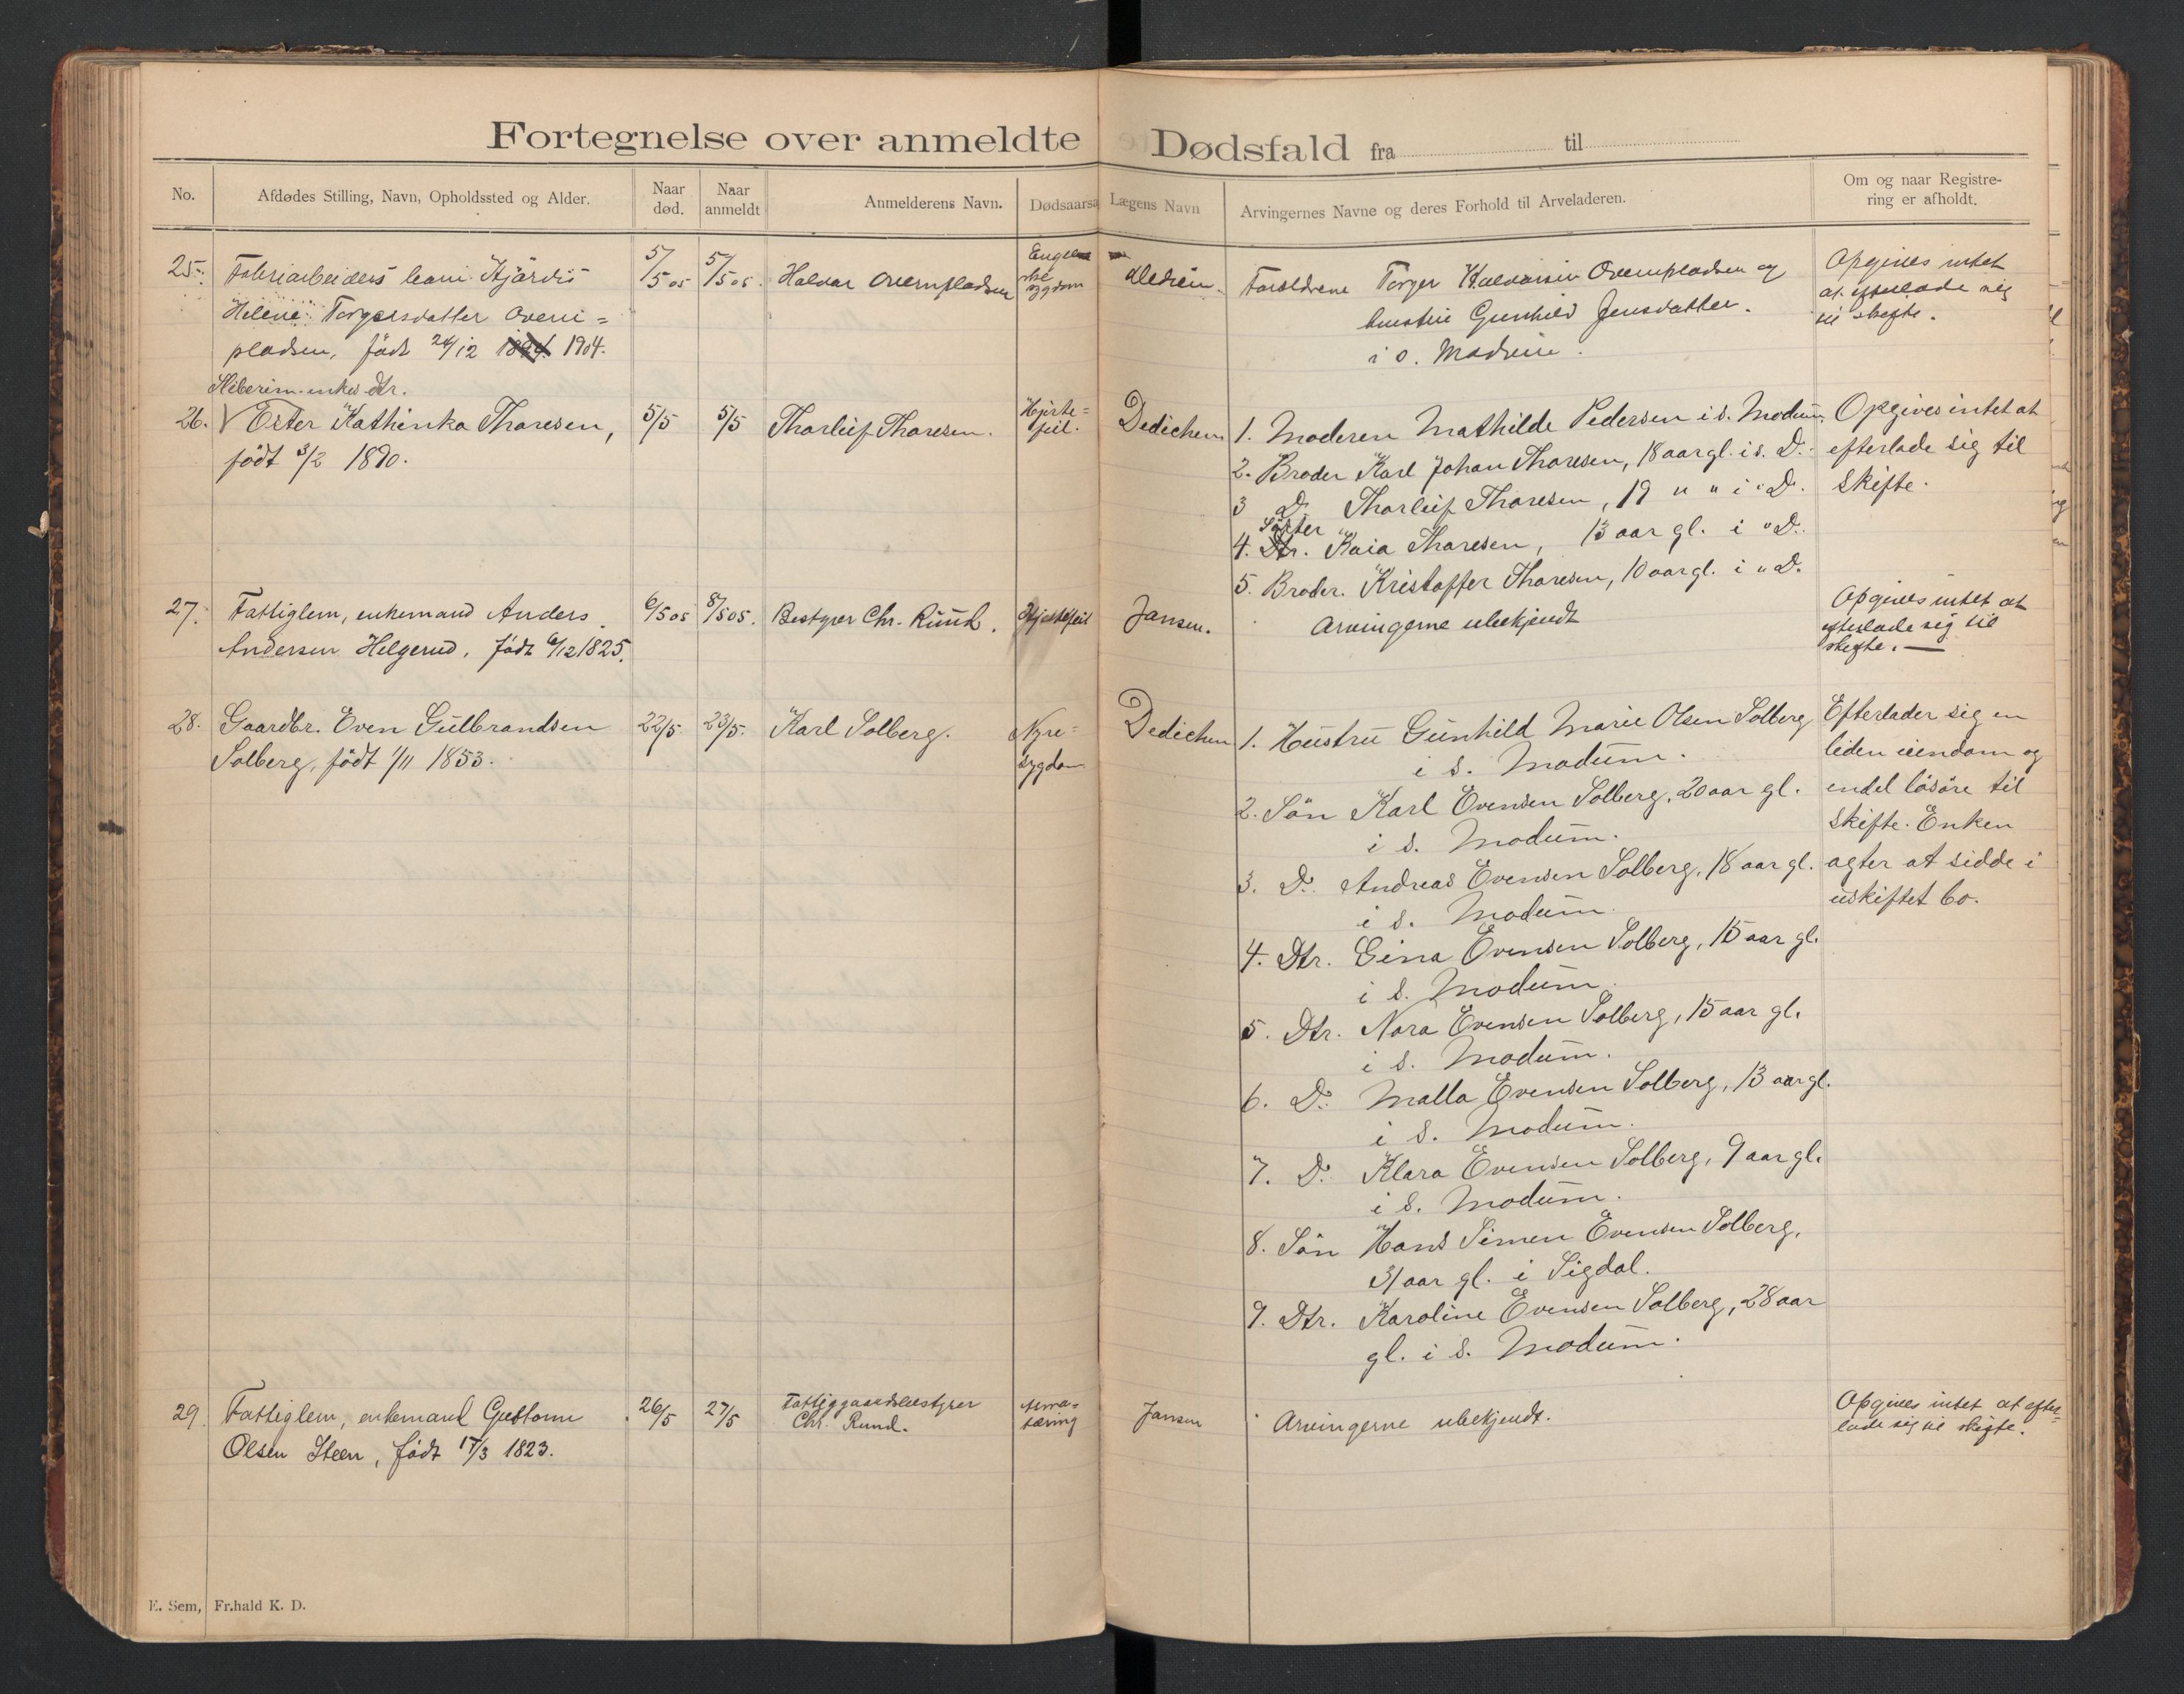 Fortegnelse over anmeldte Dødsfald fra til
No. Afdødes Stilling, Navn, Opholdssted og Alder. Naar død. Naar anmeldt Anmelderens Navn. Dødsaarsa Lægens Navn Arvingernes Navne og deres Forhold til Arveladeren. Om og naar Registrering er afholdt.
25. Hjørdis
Helene Torgersdatter Overn=
pladsen, født 24/12 1904.
5/5 05
5/5 05.
Halvar Overnpladsen
Engelske sygdom
Forældrene Torger Halvorsen Overnpladsen og
hustru Gunhild Jensdatter.
i o. Modum.
Opgives intet
at efterlade sig
til skifte.
enkes dtr.
26. Ester Kathinka Thoresen,
født 3/2 1890.
5/5
5/5
Thorleif Thoresen.
Hjerte=
feil.
Dedichen
1. Moderen Mathilde Pedersen i s. Modum.
2. Broder Karl Johan Thoresen, 18 aar gl. i s. D.
3 D. Thorleif Thoresen, 19 " " i " D.
Søster
4. Dtr. Kaia Thoresen, 13 aar gl. i " D.
5. Broder. Kristoffer Thoresen, 10 aar gl. i " D.
Opgives intet at
efterlade sig til
skifte.
27. Fattiglem, enkemand Anders
Andersen Helgerud, født 6/12 1825.
6/5 05
8/5 05.
Bestyrer Chr. Ruud.
Hjertefeil
Jansen.
Arvingerne ubekjendt
Opgives intet at
efterlade sig til
skifte. —
28. Gaardbr. Even Gulbrandsen
Solberg, født 1/11 1853.
22/5
23/5.
Karl Solberg.
Nyre=
sygdom
Dedichen
1. Hustru Gunhild Marie Olsen Solberg
i s. Modum.
2. Søn Karl Evensen Solberg, 20 aar gl.
i s. Modum.
3. D. Andreas Evensen Solberg, 18 aar gl.
i s. Modum.
4. Dtr. Gina Evensen Solberg, 15 aar gl.
i s. Modum.
5. Dtr. Nora Evensen Solberg, 15 aar gl.
i s. Modum.
6. D. Malla Evensen Solberg, 13 aar gl.
i s. Modum.
7. D. Klara Evensen Solberg, 9 aar gl.
i s. Modum.
8. Søn Hans Simen Evensen Solberg,
31 aar gl. i Sigdal.
9. Dtr. Karoline Evensen Solberg, 28 aar
gl. i s. Modum.
Efterlader sig en
liden eiendom og
endel løsøre til
skifte. Enken
agter at sidde i
uskiftet bo.
29. Fattiglem, enkemand
Olsen Steen, født 17/3 1823.
26/5
27/5
Fattiggaardsbestyrer
Chr. Ruud.
Alma=
tæring
Jansen
Arvingerne ubekjendt.
Opgives intet at efter=
lade sig til skifte.
E. Sem, Fr.hald K. D.